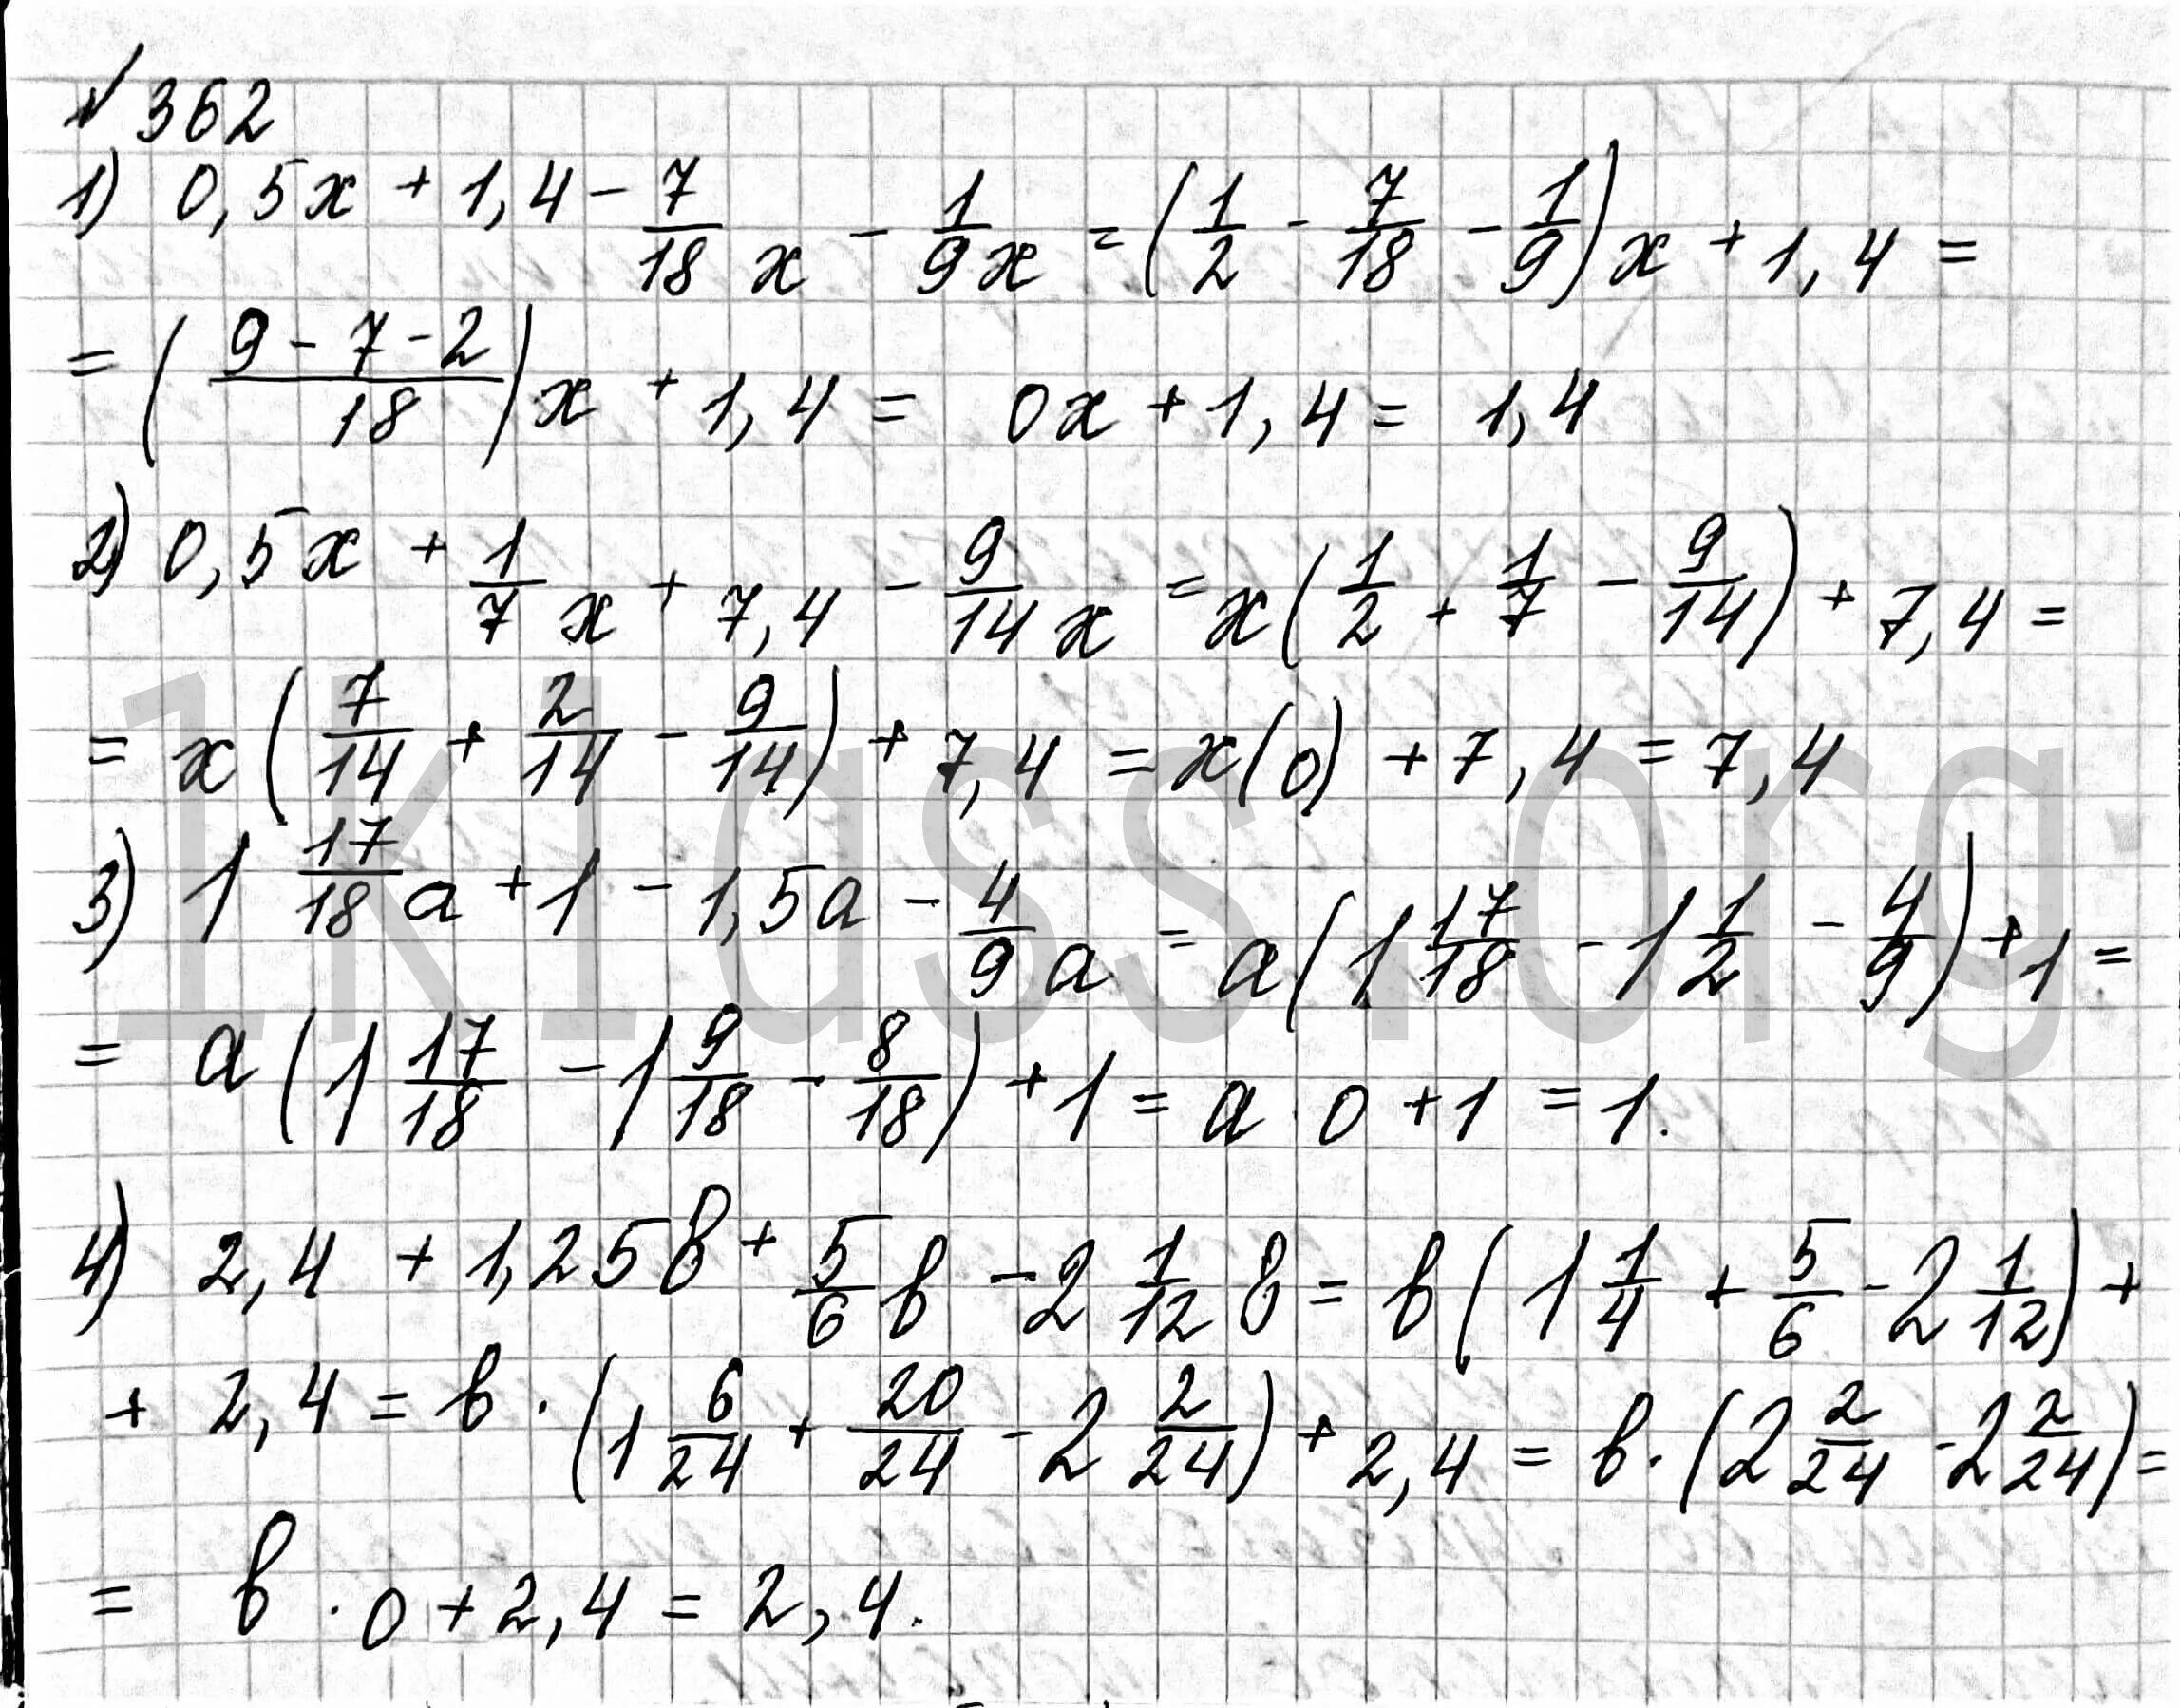 № 362
1) 0,5x + 1,4 - 7/18 x - 1/9 x = (1/2 - 7/18 - 1/9)x + 1,4 =
= ((9 - 7 - 2)/18)x + 1,4 = 0x + 1,4 = 1,4
2) 0,5x + 1/7 x + 7,4 - 9/14 x = x(1/2 + 1/7 - 9/14) + 7,4 =
= x(7/14 + 2/14 - 9/14) + 7,4 = x(0) + 7,4 = 7,4
1klass.org
3) 1 17/18 a + 1 - 1,5a - 4/9 a = a(1 17/18 - 1 1/2 - 4/9) + 1 =
= a(1 17/18 - 1 9/18 - 8/18) + 1 = a · 0 + 1 = 1.
4) 2,4 + 1,25в + 5/6 в - 2 1/12 в = в(1 1/4 + 5/6 - 2 1/12) +
+ 2,4 = в · (1 6/24 + 20/24 - 2 2/24) + 2,4 = в · (2 2/24 - 2 2/24) =
= в · 0 + 2,4 = 2,4.